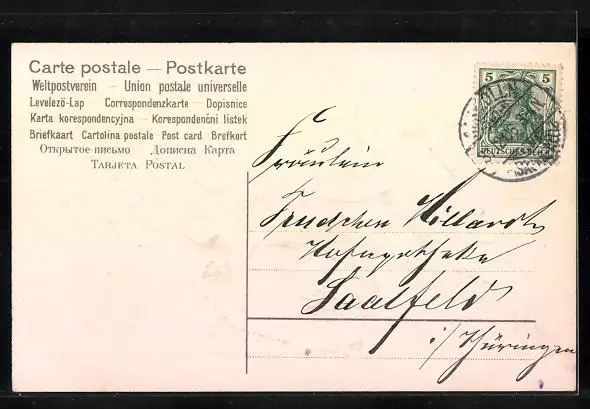 Carte postale — Postkarte
Weltpostverein - Union postale universelle
Levelező-Lap - Correspondenzkarte - Dopisnice
Karta korespondencyjna - Korespondenční listek
Briefkaart Cartolina postale - Post card Brefkort
Открытое письмо Дописна Карта
TARJETA POSTAL
5 5
DEUTSCHES REICH
Fräulein
Hofapotheke
Saalfeld
i/Thüringen